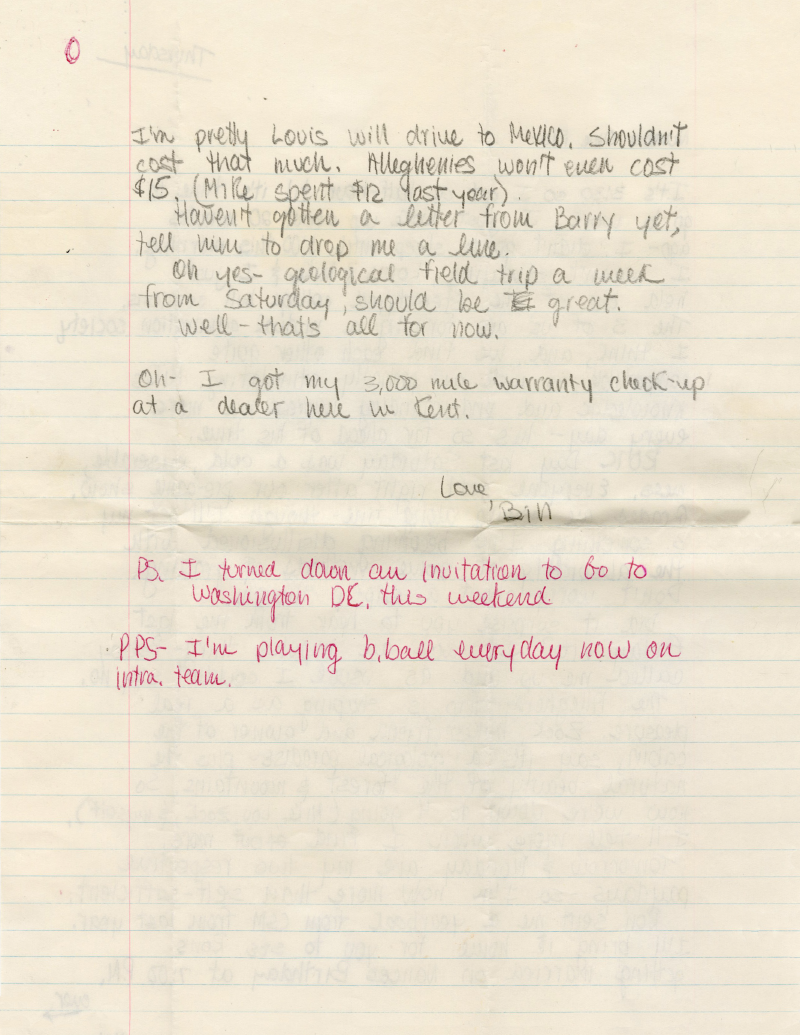 0
I'm pretty Louis will drive to Mexico. Shouldn't
cost that much. Alleghenies won't even cost
$15. (Mike spent $12 last year).
Haven't gotten a letter from Barry yet,
tell him to drop me a line.
Oh yes- geological field trip a week
from Saturday, should be great.
Well - that's all for now.
Oh- I got my 3,000 mile warranty check-up
at a dealer here in Kent.
Love,
Bill
PS. I turned down an invitation to Go to
Washington DC. this weekend
PPS- I'm playing b.ball everyday now on
intra. team.